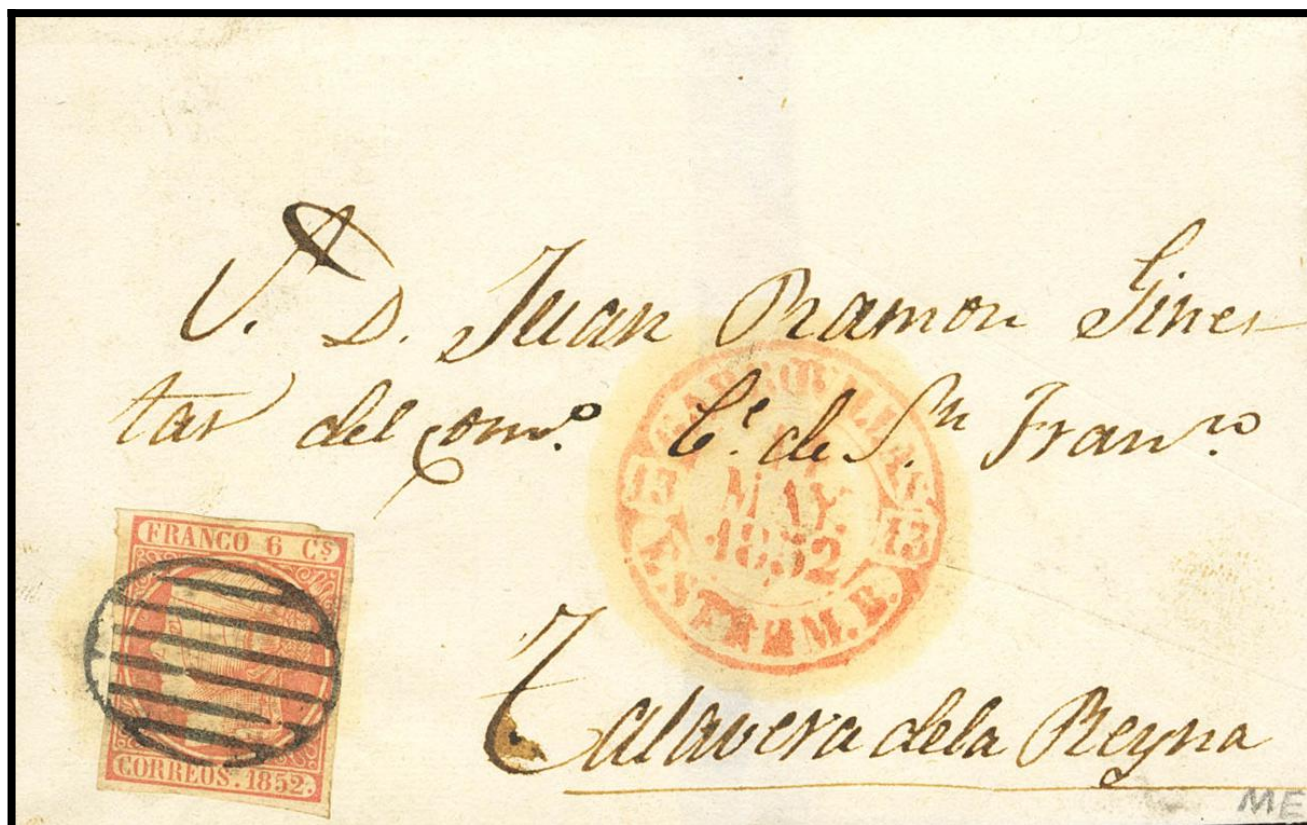 S. D. Juan Ramon Gines
tar del com.º C.e de S.n Fran.co
GARROBILLAS
MAY.
1852
13 13
ESTREM. B.
FRANCO 6 CS
CORREOS. 1852.
Talavera dela Reyna
ME